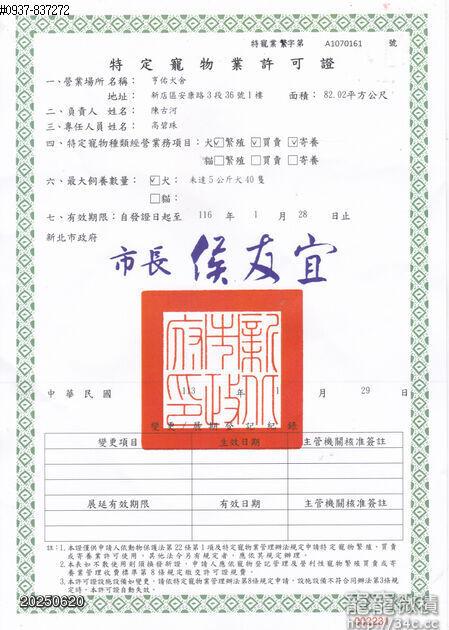 #0937-837272
特寵業繁字第 A1070161 號
特定寵物業許可證
一、營業場所名稱： 亨佑犬舍
地址： 新店區安康路3段36號1樓 面積：82.02平方公尺
二、負責人姓名： 陳古河
三、專任人員姓名： 高碧珠
四、特定寵物種類經營業務項目：犬☑繁殖☑買賣☑寄養
貓□繁殖□買賣□寄養
六、最大飼養數量：☑犬： 未達5公斤犬40隻
□貓：
七、有效期限：自發證日起至 116 年 1 月 28 日止
新北市政府
市長 侯友宜
新北市政府印
中華民國 113 年 1 月 29 日
變更/展期登記紀錄
變更項目 生效日期 主管機關核准簽註
展延有效期限 有效日期 主管機關核准簽註
註：1.本證僅供申請人依動物保護法第22條第1項及特定寵物業管理辦法規定申請特定寵物繁殖、買賣
或寄養業許可使用，其他法令另有規定者，應依其規定辦理。
2.本表如不敷使用則須換發新證，申請人應依寵物登記管理及營利性寵物繁殖買賣或寄養
業管理收費標準第8條規定繳交許可證規費。
3.本許可證設施設備如變更，請依特定寵物業管理辦法第8條規定申請，設施設備不符合同辦法第3條規
定時，本許可證自動失效。
20250620
002231
龍龍微積
https://34c.cc